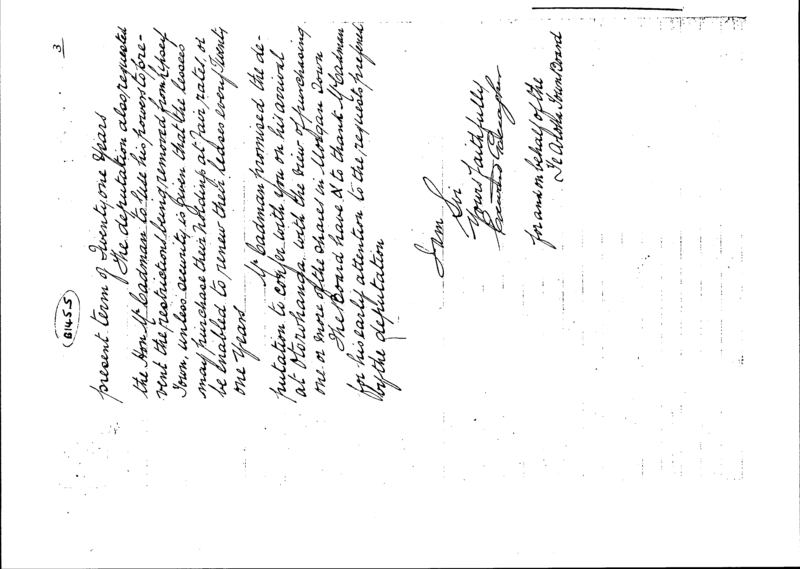 3
B1455
present term of Twenty one Years
The deputation also requested
the Hon. Mr Cadman to use his powers to pre-
vent the restriction being removed from Lipsey
Town, unless security is given that the lessees
may purchase their holdings at fair rates, or
be enabled to renew their leases every Twenty
one Years
Mr Cadman promised the de-
putation to confer with you on his arrival
at Otorohanga with the view of purchasing
one or more of the shares in Morgan Town
The Board have to thank Mr Cadman
for his early attention to the requests prefered
by the deputation
I am Sir
Yours faithfully
for and on behalf of the
Te Aroha Town Board